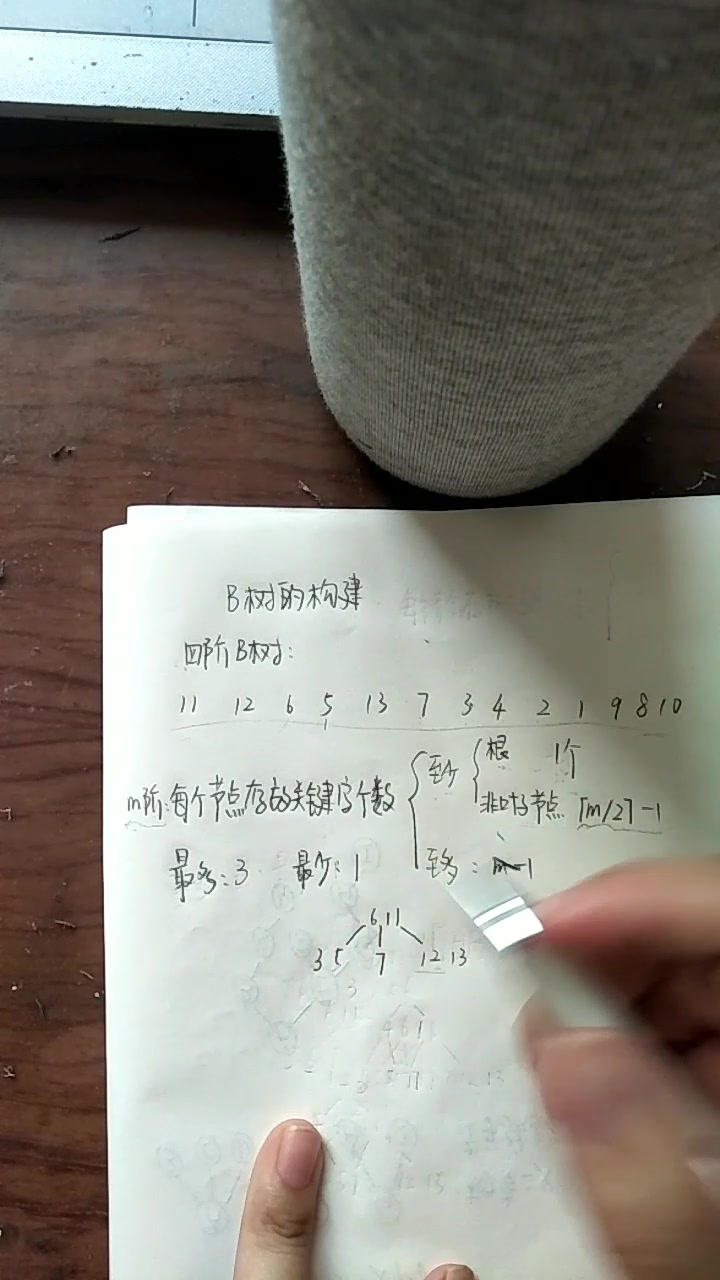 B树的构建
四阶B树:
11 12 6 5 13 7 3 4 2 1 9 8 10
至少 根 1个
m阶:每个节点存放关键字个数 非叶子节点 ⌈m/2⌉-1
最多:3 最少:1 至多: m-1
6 11
3 5 7 12 13